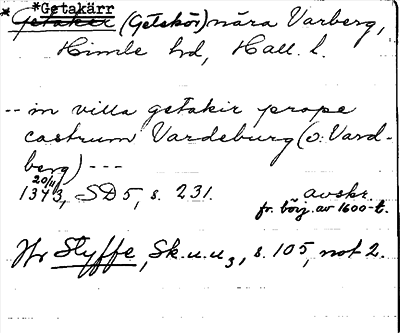 *Getakärr
* Getakir (Getskör) nära Varberg,
Himle hd, Hall. l.
-- in villa getakir prope
castrum Vardeburg (ɔ: Vard-
berg) ---
20/11
1343, SD 5, s. 231. avskr.
fr. börj. av 1600-t.
Styffe, Sk. u. u 3, s. 105, not 2.